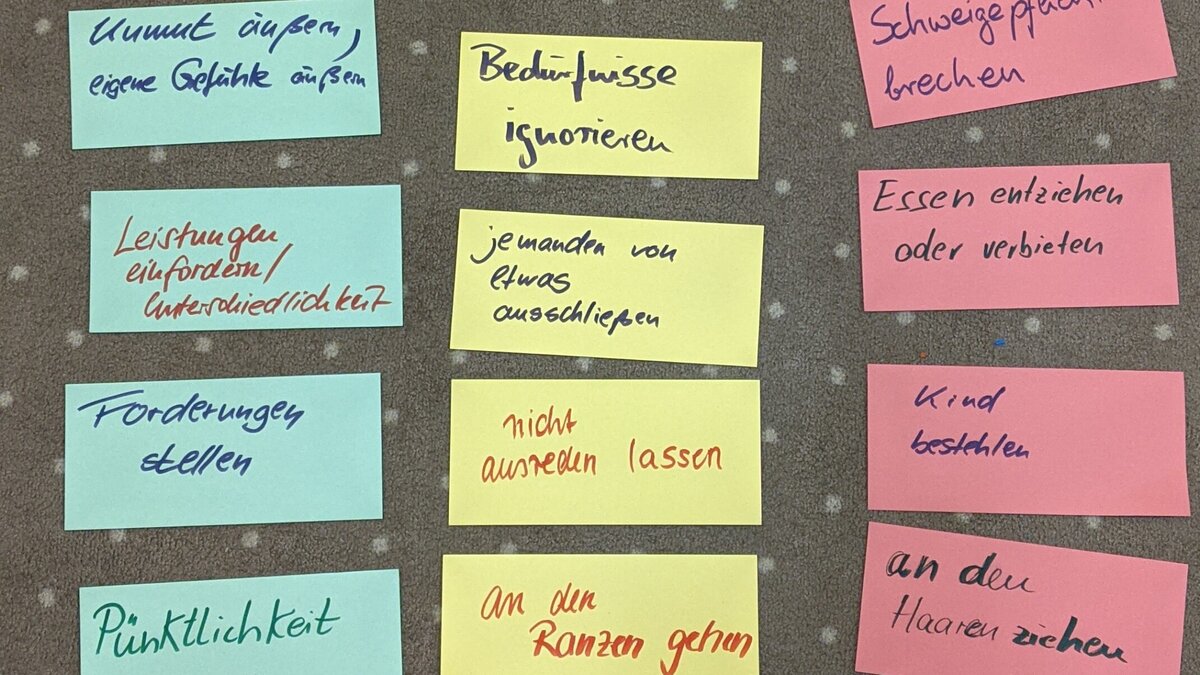 Unmut äußern,
eigene Gefühle äußern
Leistungen
einfordern/
Unterschiedlichkeit
Forderungen
stellen
Pünktlichkeit
Bedürfnisse
ignorieren
jemanden von
etwas
ausschließen
nicht
ausreden lassen
an den
Ranzen gehen
Schweigepflicht
brechen
Essen entziehen
oder verbieten
Kind
bestehlen
an den
Haaren ziehen